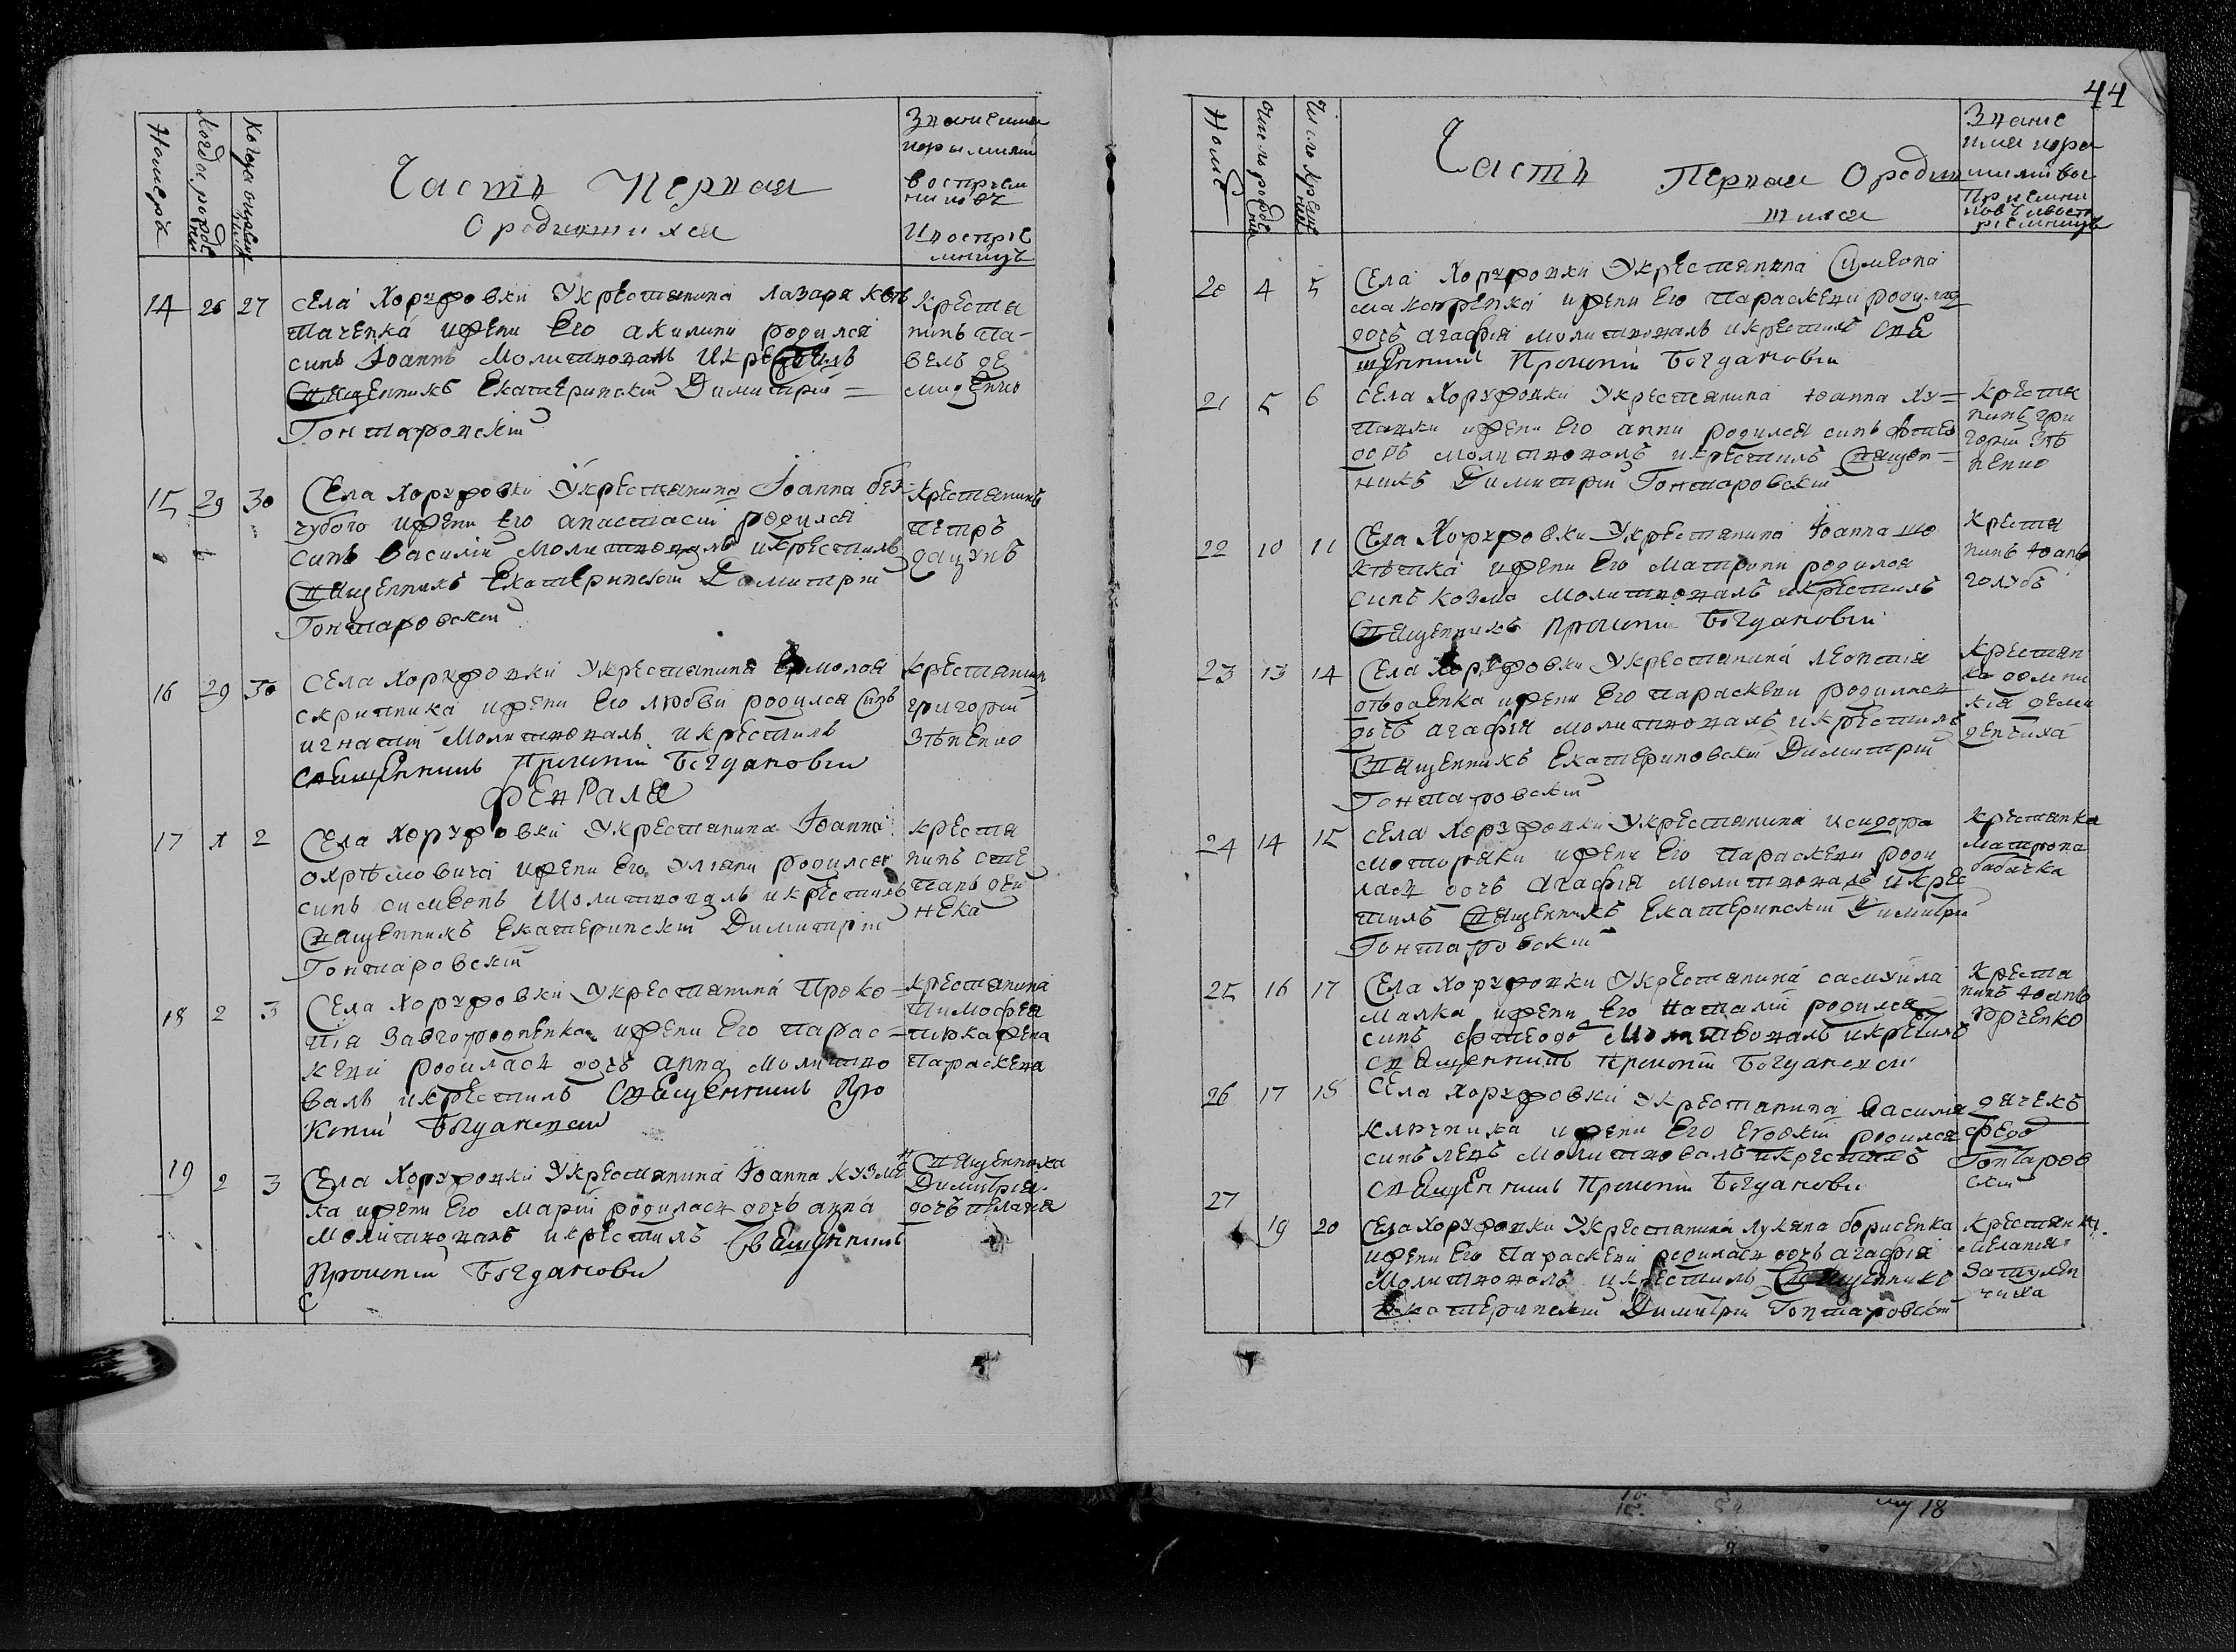 Номеръ
Когда рожде
ни
Часть Первая
О родившихся
Званіе имя
и восприе
мницъ
14 26 27 Села Хоружовки Укрестянина Лазаря
таченка ижени Его акилини родился
синъ Іоаннъ Молитвовалъ икрестилъ
Священникъ Екатеринскій Димитрій =
Гонтаровскій
Крестя
нинъ Па-
велъ де
мидѣнко
15 29 30 Села Хоружовки Укрестянина Іоанна без
чубого ижени Его анастасіи родился
синъ Василій Молитвовалъ икрестилъ
Священникъ Екатеринскій Димитрій
Гонтаровскій
Крестянинъ
Петръ
дацунъ
16 29 30 Села Хоружовки Укрестянина Ермолая
скрипника ижени Его любви родился Синъ
игнатій Молитвовалъ икрестилъ
священникъ Прокопій Богдановій
Крестянин
григорій
Зѣненко
Февраля
17 1 2 Села Хоружовки Укрестянина Іоанна
охрѣмовича ижени Его уляни родился
синъ симеонъ Молитвовалъ икрестилъ
Священникъ Екатеринскій Димитрій
Гонтаровскій
крестя
нинъ сте
панъ дей
нека
18 2 3 Села Хоружовки Укрестянина Проко=
пія Завгороднѣнка ижени Его парас=
кеви родилась дочь анна Молитво
валъ икрестилъ Священникъ Про
копій Богдановій
крестянина
Тимофея
жена
Параскева
19 2 3 Села Хоружовки Укрестянина Іоанна кузме
ка ижени Его Маріи родилась дочь анна
Молитвовалъ икрестилъ Священникъ
Прокопій Богданови
Священника
Димитрія
дочь
44
Номе
Число рожде
нія
Число креще
нія
Часть Первая О родив
шихся
Званіе
имя и про
20 4 5 Села Хоружовки Укрестянина Симеона
макопренка ижени Его Параскеви родилась
дочь агафія молитвовалъ икрестилъ Свя
щенникъ Прокопій Богдановій
21 5 6 Села Хоружовки Укрестянина Іоанна ху=
павки ижени Его анни родился синъ фтео
досъ молитвовалъ икрестилъ Священ=
никъ Димитрій Гонтаровскій
Крестя
нинъ гри
горій Зѣ
ненко
22 10 11 Села Хоружовки Укрестянина Іоанна
ижени Его Матрони родился
синъ Козма молитвовалъ икрестилъ
Священникъ Прокопій Богдановій
Крестя
нинъ Іоанъ
голубъ
23 13 14 Села Хоружовки Укрестянина леонтія
ижени Его параскеви родилась
дочь агафія молитвовалъ икрестилъ
Священникъ Екатериновскій Димитрій
Гонтаровскій
Крестян
ка домни
кія деми
денчиха
24 14 15 Села Хоружовки Укрестянина исидора
моторяки ижени Его Параскеви роди
лась дочь агафія молитвовалъ икрес
тилъ Священникъ Екатеринскій Димитрій
Гонтаровскій
Крестянка
Матрона
бабачка
25 16 17 Села Хоружовки Укрестянина самуила
маяка ижени Его наталіи родился
синъ фтеодо Молитвовалъ икрестилъ
священникъ Прокопій Богдановси
Крестя
нинъ Іоанъ
юрченко
26 17 18 Села Хоружовки Укрестянина Василия
ключника ижени Его евдокіи родился
синъ левъ молитвовалъ икрестилъ
священникъ Прокопій Богданови
дячекъ
федо
Гонтаров
скій
27 19 20 Села Хоружовки Укрестянина лукяна борисенка
ижени Его Параскеви родилась дочь агафія
Молитвовалъ икрестилъ Священникъ
Екатеринскій Димитрій Гонтаровскій
Крестянк
Мелания
Затулен
чиха
18